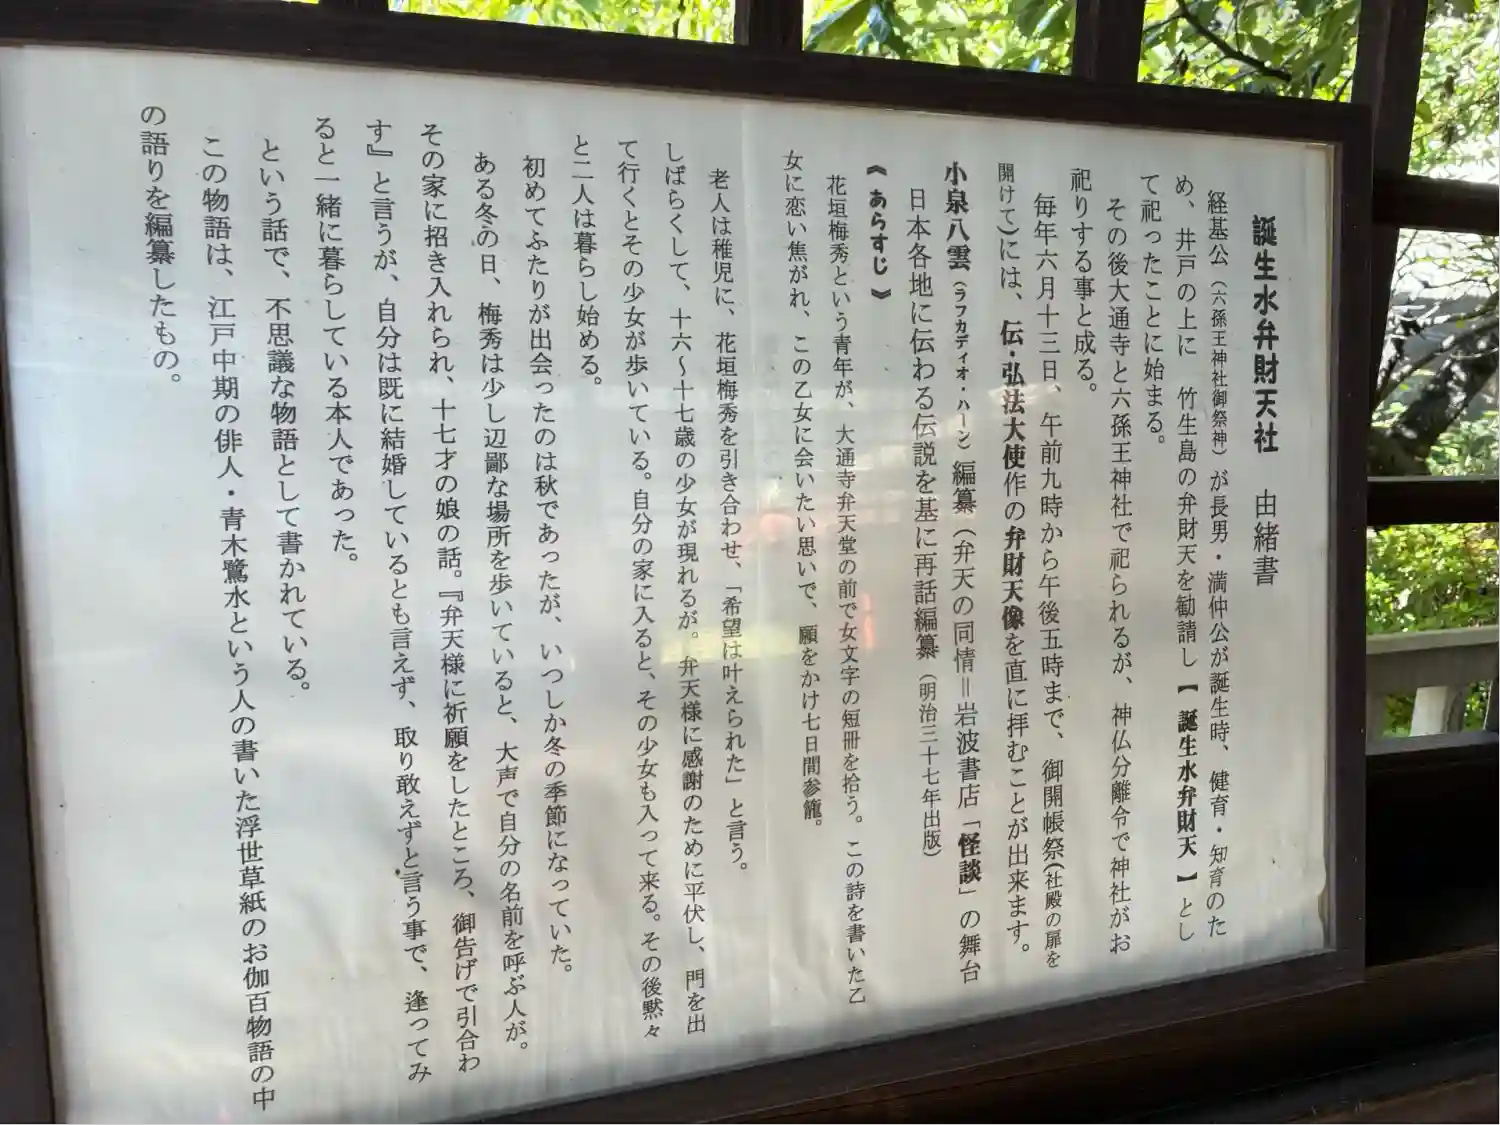 誕生水弁財天社　由緒書
経基公（六孫王神社御祭神）が長男・満仲公が誕生時、健育・知育のた
め、井戸の上に　竹生島の弁財天を勧請し【誕生水弁財天】とし
て祀ったことに始まる。
その後大通寺と六孫王神社で祀られるが、神仏分離令で神社がお
祀りする事と成る。
毎年六月十三日、午前九時から午後五時まで、御開帳祭（社殿の扉を
開けて）には、伝・弘法大使作の弁財天像を直に拝むことが出来ます。
小泉八雲（ラフカディオ・ハーン）編纂（弁天の同情＝岩波書店「怪談」の舞台
日本各地に伝わる伝説を基に再話編纂（明治三十七年出版）
《あらすじ》
花垣梅秀という青年が、大通寺弁天堂の前で女文字の短冊を拾う。この詩を書いた乙
女に恋い焦がれ、この乙女に会いたい思いで、願をかけ七日間参籠。
老人は稚児に、花垣梅秀を引き合わせ、「希望は叶えられた」と言う。
しばらくして、十六～十七歳の少女が現れるが。弁天様に感謝のために平伏し、門を出
て行くとその少女が歩いている。自分の家に入ると、その少女も入って来る。その後黙々
と二人は暮らし始める。
初めてふたりが出会ったのは秋であったが、いつしか冬の季節になっていた。
ある冬の日、梅秀は少し辺鄙な場所を歩いていると、大声で自分の名前を呼ぶ人が。
その家に招き入れられ、十七才の娘の話。『弁天様に祈願をしたところ、御告げで引合わ
す』と言うが、自分は既に結婚しているとも言えず、取り敢えずと言う事で、逢ってみ
ると一緒に暮らしている本人であった。
という話で、不思議な物語として書かれている。
この物語は、江戸中期の俳人・青木鷺水という人の書いた浮世草紙のお伽百物語の中
の語りを編纂したもの。